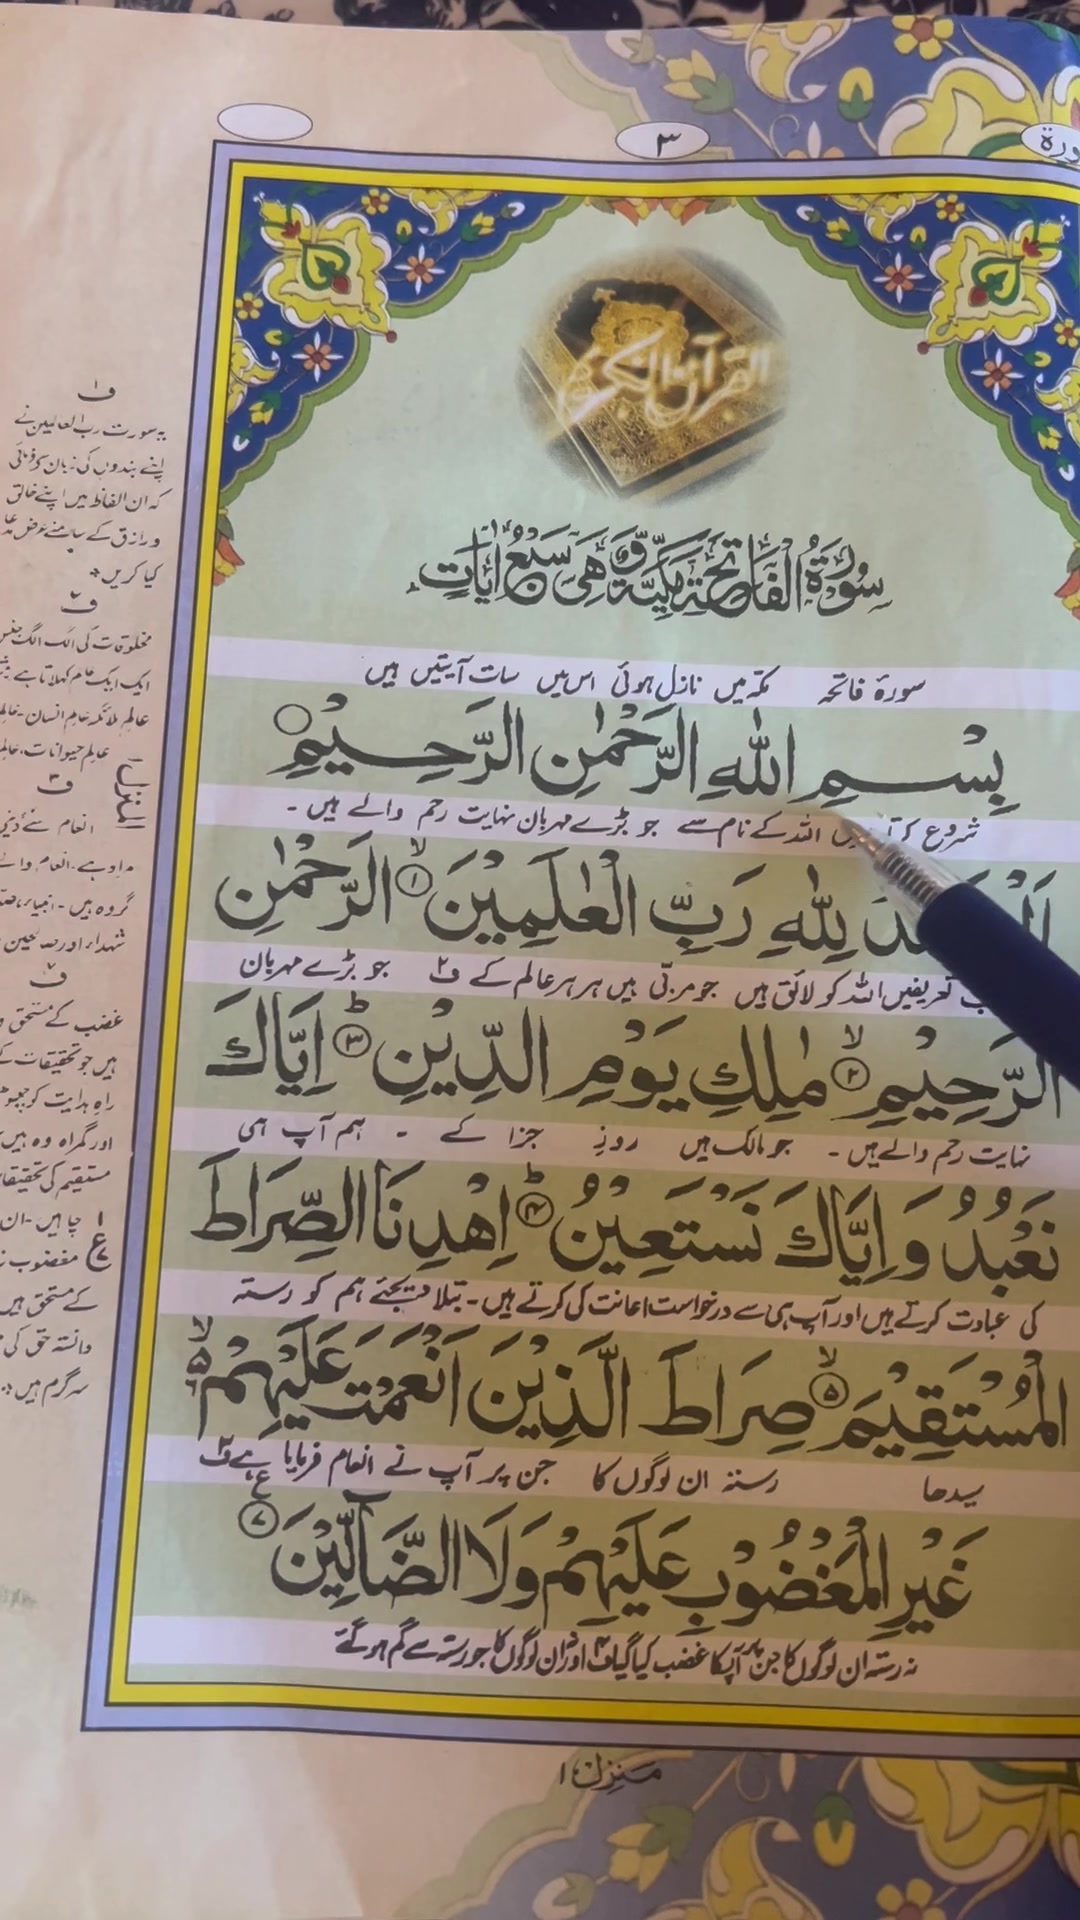 ٣
القرآن الكريم
سُوْرَةُ الْفَاتِحَةِ مَكِّيَّةٌ وَّهِيَ سَبْعُ اٰيَاتٍ
سورۂ فاتحہ مکہ میں نازل ہوئی اس میں سات آیتیں ہیں
بِسْمِ اللّٰهِ الرَّحْمٰنِ الرَّحِيْمِ
شروع اللہ کے نام سے جو بڑے مہربان نہایت رحم والے ہیں ۔
لِلّٰهِ رَبِّ الْعٰلَمِيْنَ ۙ﴿۱﴾ الرَّحْمٰنِ
تعریفیں اللہ کو لائق ہیں جو مربّی ہیں ہر ہر عالم کے ف۲ جو بڑے مہربان
الرَّحِيْمِ ۙ﴿۲﴾ مٰلِكِ يَوْمِ الدِّيْنِ ؕ﴿۳﴾ اِيَّاكَ
نہایت رحم والے ہیں ۔ جو مالک ہیں روزِ جزا کے ۔ ہم آپ ہی
نَعْبُدُ وَاِيَّاكَ نَسْتَعِيْنُ ؕ﴿۴﴾ اِهْدِنَا الصِّرَاطَ
کی عبادت کرتے ہیں اور آپ ہی سے درخواست اعانت کی کرتے ہیں ۔ بتلا دیجئے ہم کو رستہ
الْمُسْتَقِيْمَ ۙ﴿۵﴾ صِرَاطَ الَّذِيْنَ اَنْعَمْتَ عَلَيْهِمْ ۙ۬
سیدھا رستہ ان لوگوں کا جن پر آپ نے انعام فرمایا ہے ف۳
غَيْرِ الْمَغْضُوْبِ عَلَيْهِمْ وَلَا الضَّآلِّيْنَ ﴿۷﴾
نہ رستہ ان لوگوں کا جن پر آپ کا غضب کیا گیا ف۴ اور نہ ان لوگوں کا جو رستہ سے گم ہو گئے
منزل ۱
ف۱
یہ سورت رب العالمین نے
اپنے بندوں کی زبان سے فرمائی
کہ ان الفاظ میں اپنے خالق
ورازق کے سامنے عرض مدعا
کیا کریں
ف۲
مخلوقات کی الگ الگ جنس
ایک ایک عالم کہلاتا ہے
عالم ملائکہ عالم انسان
عالم حیوانات
ف۳
انعام سے دینی
مراد ہے۔ انعام والے
گروہ ہیں۔ انبیاء
شہداء اور صالحین
غضب کے مستحق
ہیں جو تحقیقات کے
راہ ہدایت کو چھوڑ
اور گمراہ وہ ہیں
مستقیم کی تحقیقات
چاہیں۔ ان
مغضوب
کے مستحق ہیں
دانستہ حق کی
سرگرم ہیں